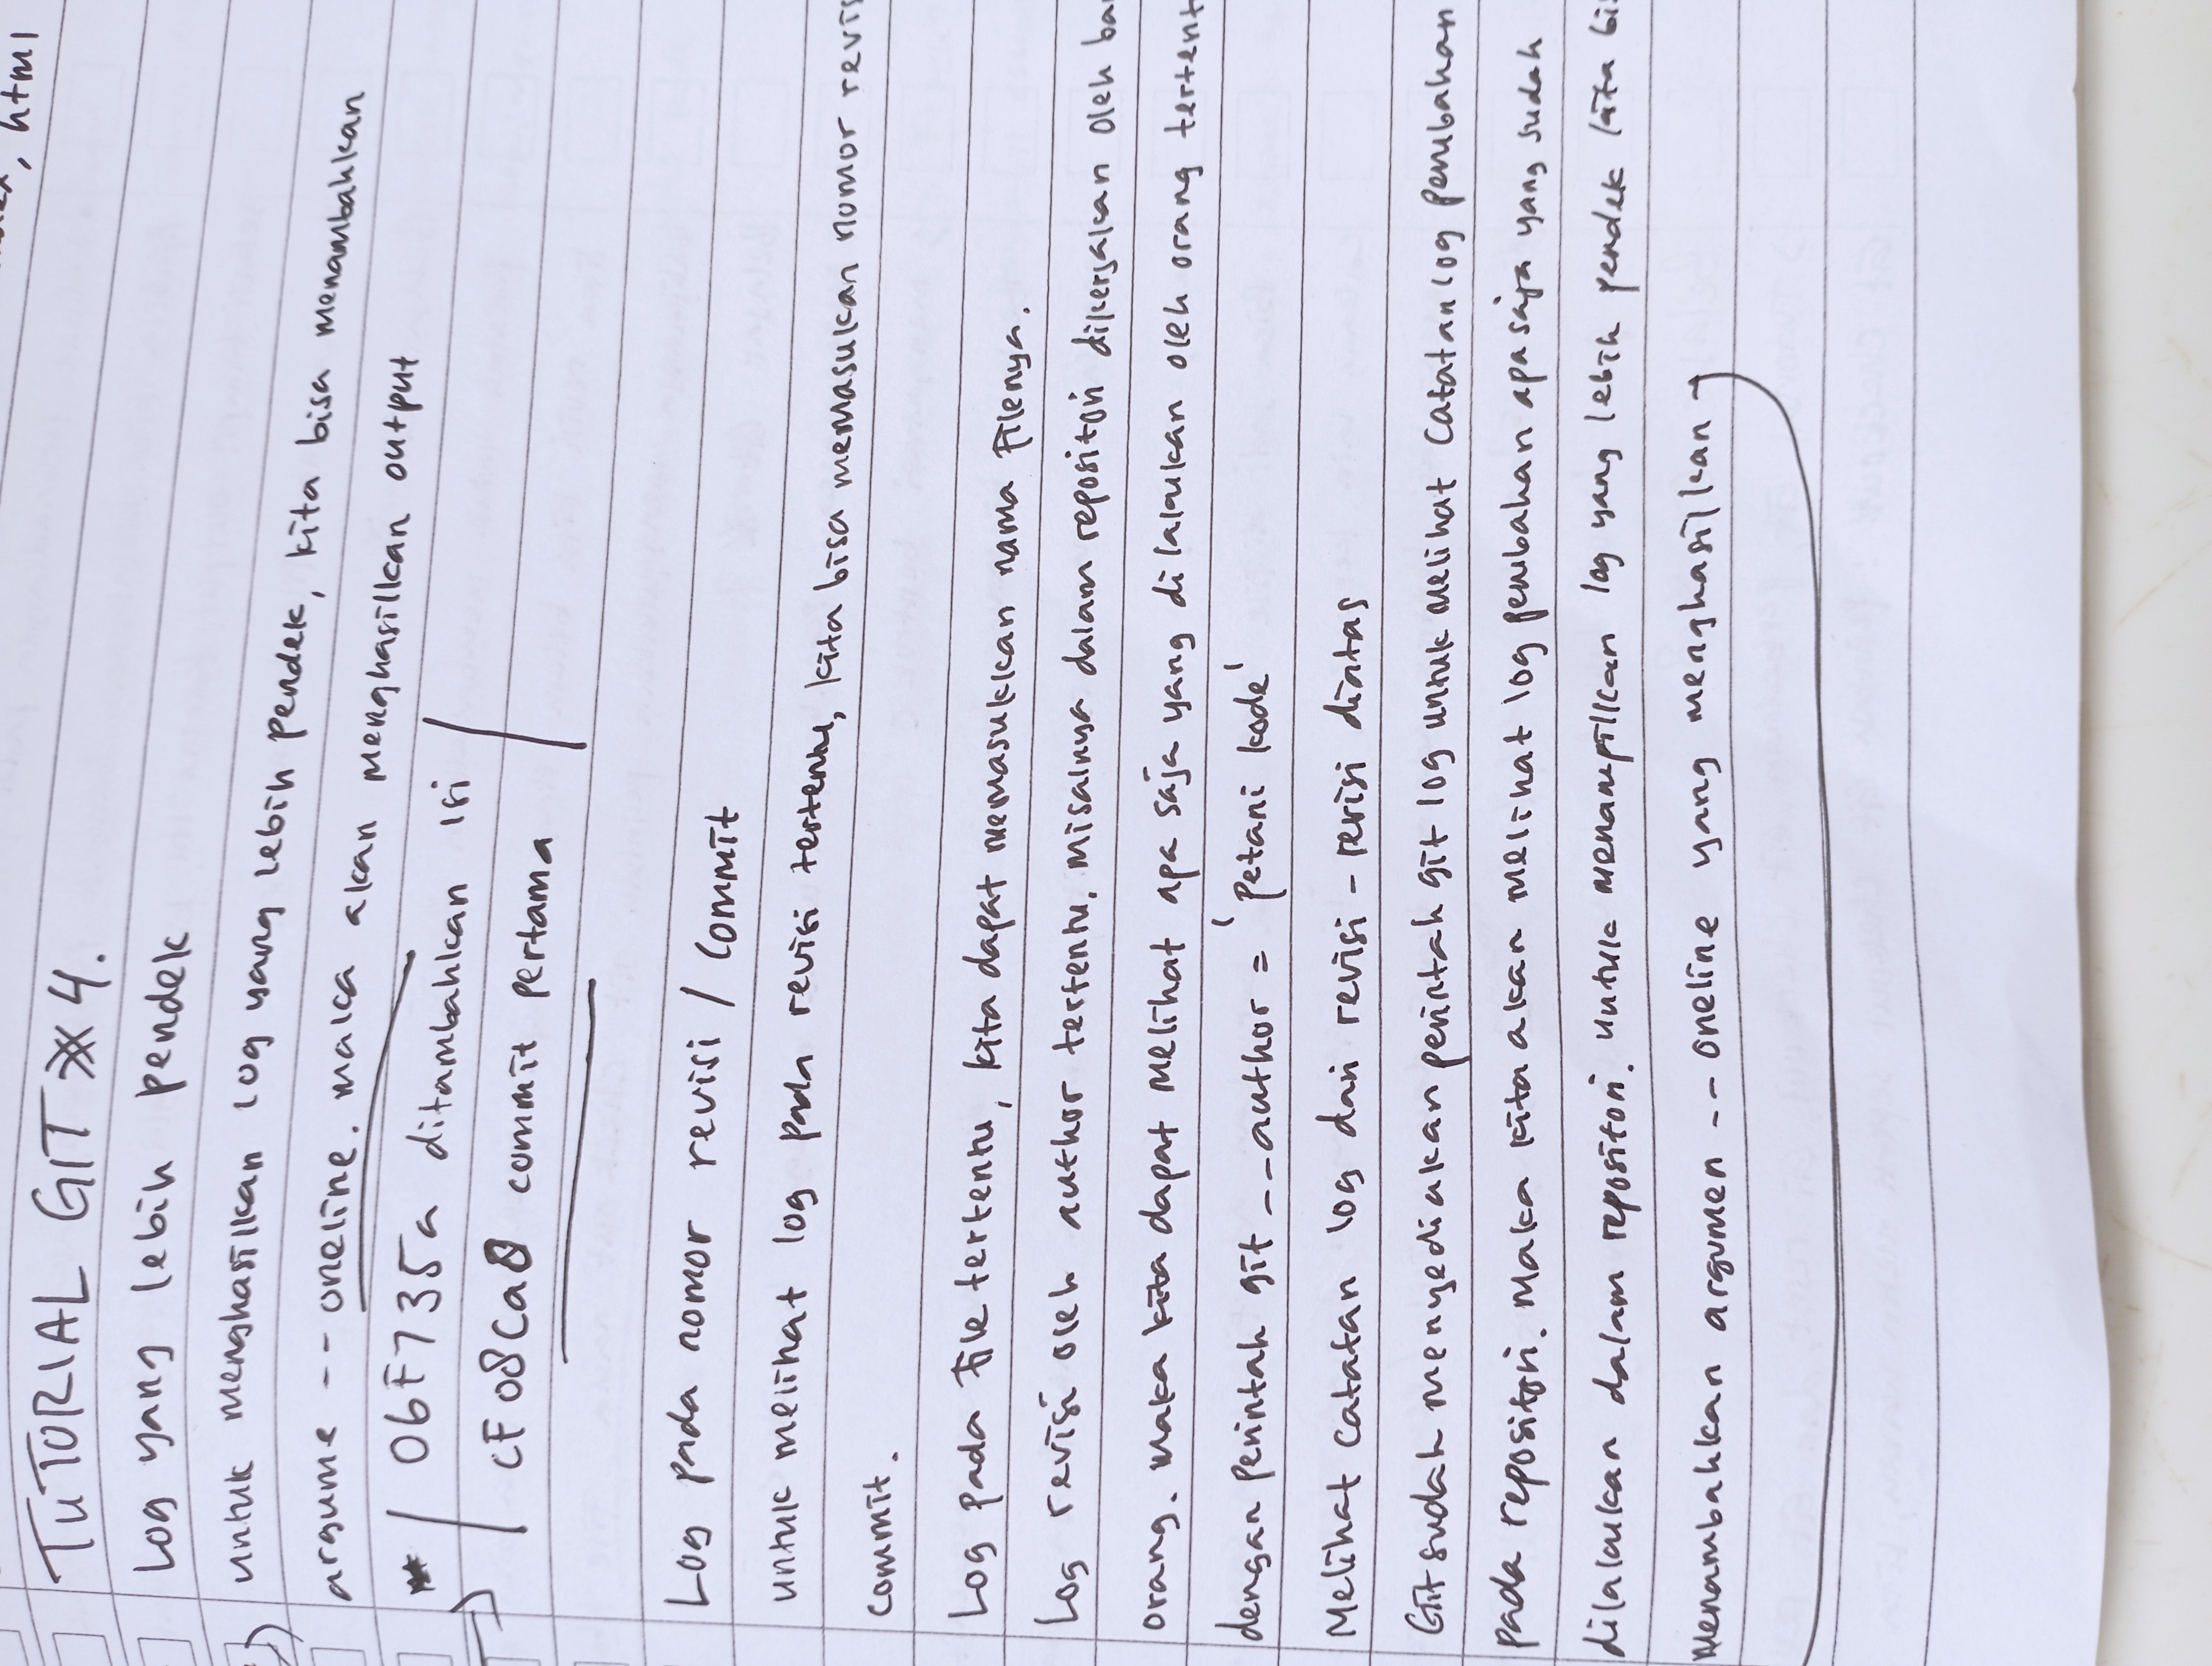 , html
TUTORIAL GIT # 4.
Log yang lebih pendek
untuk menghasilkan log yang lebih pendek, kita bisa menambahkan
argume --- oneline. maka akan menghasilkan output
06F735a ditambahkan isi
cF08Ca8 commit pertama
Log pada nomor revisi / commit
untuk melihat log pada revisi tertentu, kita bisa memasukan nomor revis
commit.
Log pada File tertentu, kita dapat memasukkan nama Filenya.
Log revisi oleh author tertentu. Misalnya dalam repositori dikerjakan oleh ba
orang. maka kita dapat melihat apa saja yang dilalaukan oleh orang tertent
dengan perintah git --- author = 'Petani kode'
Melihat Catatan log dari revisi - revisi diatas
Git sudah menyediakan perintah git log untuk melihat Catatan log perubahan
pada repositori. Maka kita akan melihat log perubahan apa saja yang sudah
dilalaukan dalam repositori. untuk menampilkan log yang lebih pendek kita bis
Menambahkan argumen --- oneline yang menghasilkan